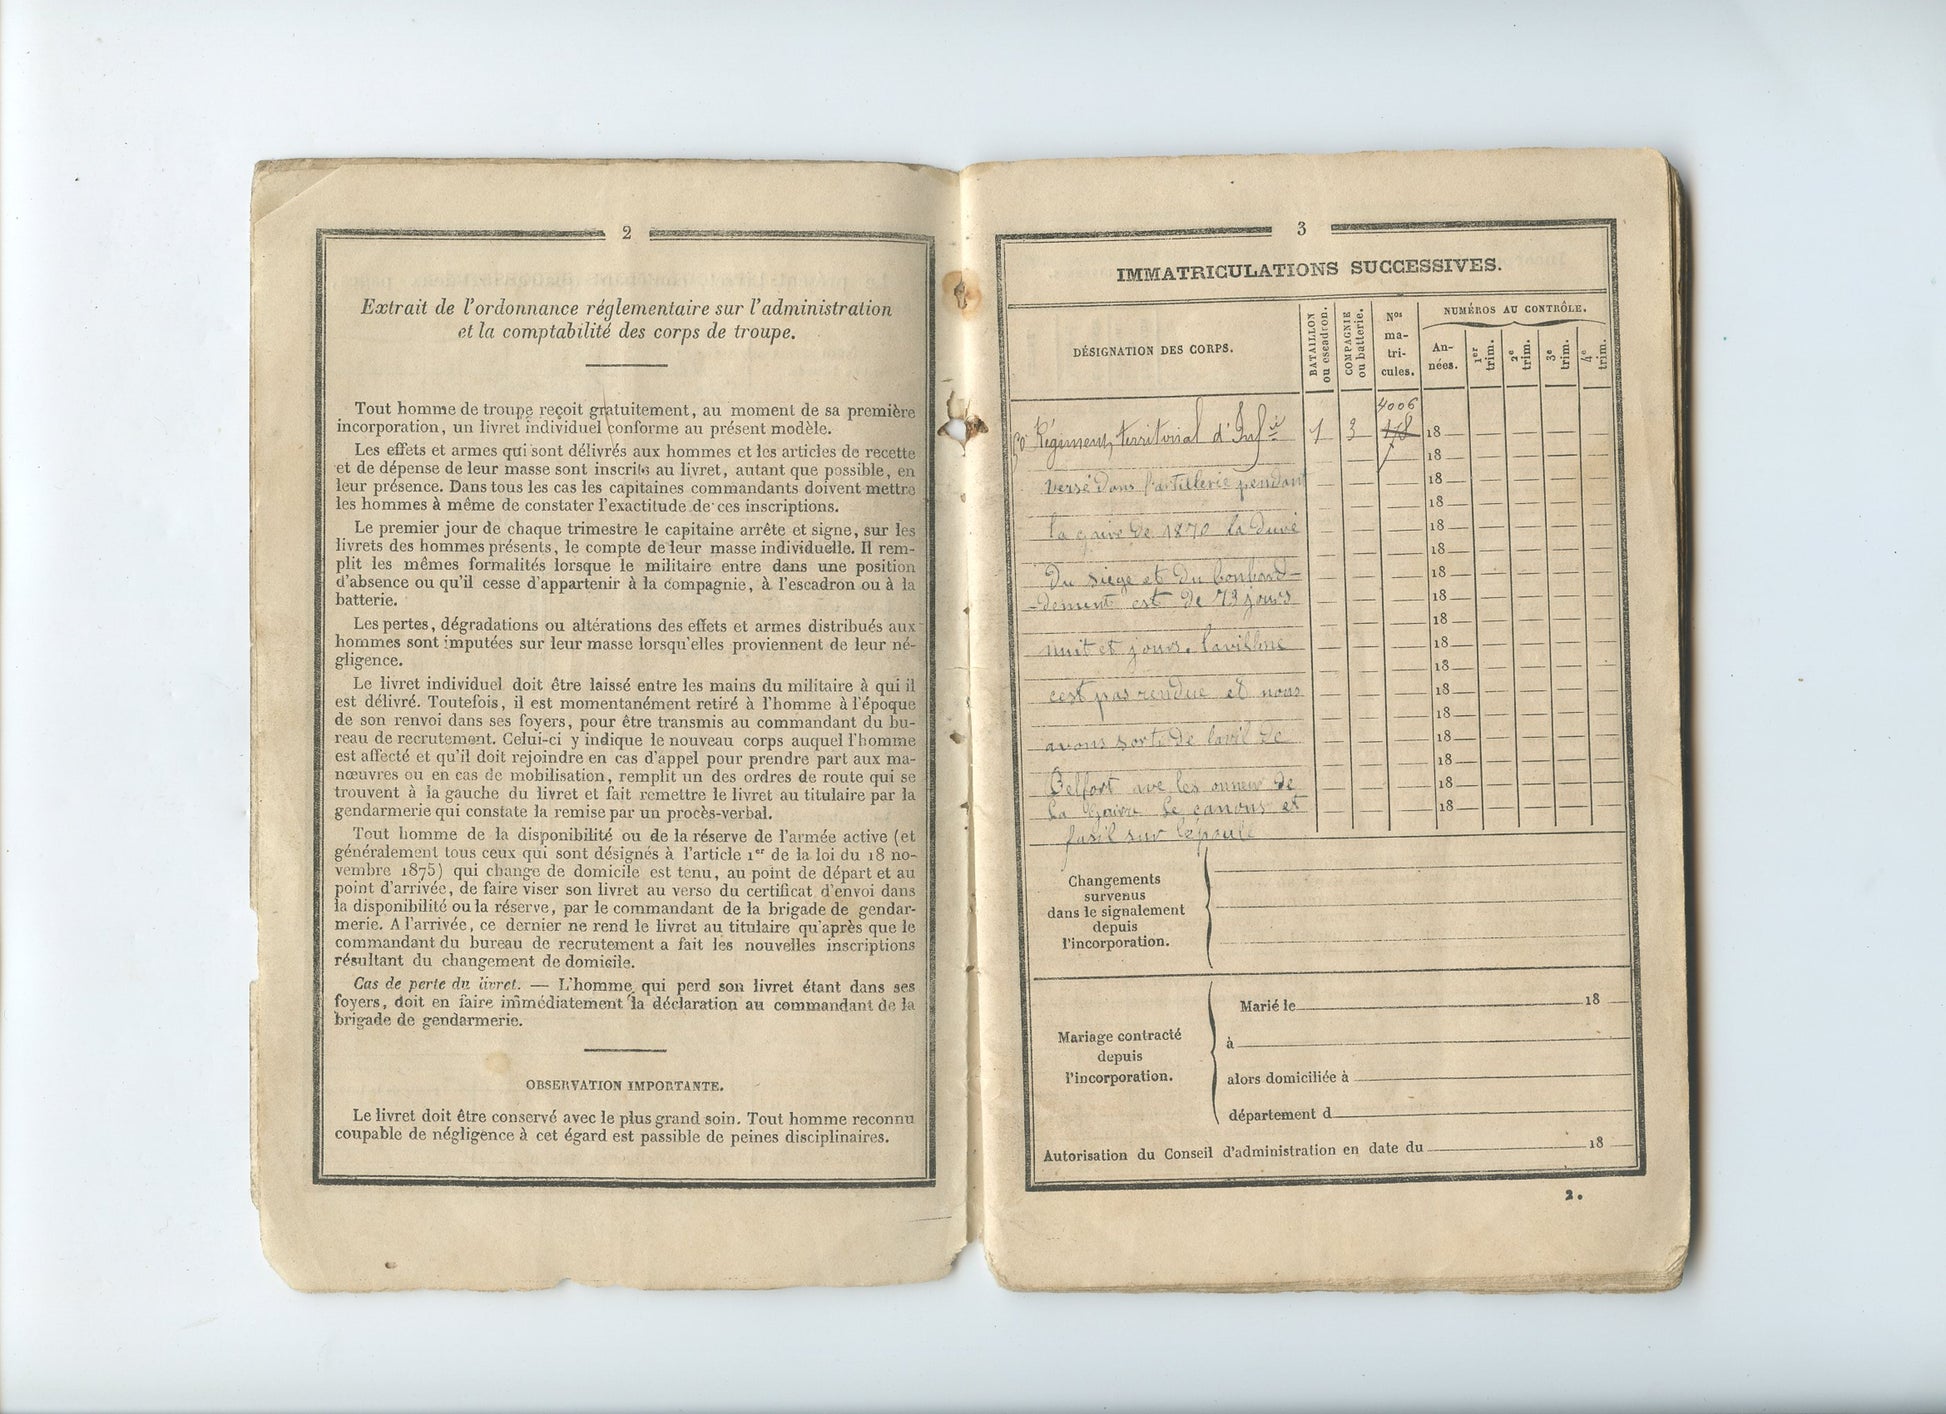 2
Extrait de l'ordonnance réglementaire sur l'administration
et la comptabilité des corps de troupe.
Tout homme de troupe reçoit gratuitement, au moment de sa première
incorporation, un livret individuel conforme au présent modèle.
Les effets et armes qui sont délivrés aux hommes et les articles de recette
et de dépense de leur masse sont inscrits au livret, autant que possible, en
leur présence. Dans tous les cas les capitaines commandants doivent mettre
les hommes à même de constater l'exactitude de ces inscriptions.
Le premier jour de chaque trimestre le capitaine arrête et signe, sur les
livrets des hommes présents, le compte de leur masse individuelle. Il rem-
plit les mêmes formalités lorsque le militaire entre dans une position
d'absence ou qu'il cesse d'appartenir à la compagnie, à l'escadron ou à la
batterie.
Les pertes, dégradations ou altérations des effets et armes distribués aux
hommes sont imputées sur leur masse lorsqu'elles proviennent de leur né-
gligence.
Le livret individuel doit être laissé entre les mains du militaire à qui il
est délivré. Toutefois, il est momentanément retiré à l'homme à l'époque
de son renvoi dans ses foyers, pour être transmis au commandant du bu-
reau de recrutement. Celui-ci y indique le nouveau corps auquel l'homme
est affecté et qu'il doit rejoindre en cas d'appel pour prendre part aux ma-
nœuvres ou en cas de mobilisation, remplit un des ordres de route qui se
trouvent à la gauche du livret et fait remettre le livret au titulaire par la
gendarmerie qui constate la remise par un procès-verbal.
Tout homme de la disponibilité ou de la réserve de l'armée active (et
généralement tous ceux qui sont désignés à l'article 1er de la loi du 18 no-
vembre 1875) qui change de domicile est tenu, au point de départ et au
point d'arrivée, de faire viser son livret au verso du certificat d'envoi dans
la disponibilité ou la réserve, par le commandant de la brigade de gendar-
merie. A l'arrivée, ce dernier ne rend le livret au titulaire qu'après que le
commandant du bureau de recrutement a fait les nouvelles inscriptions
résultant du changement de domicile.
Cas de perte du livret. — L'homme qui perd son livret étant dans ses
foyers, doit en faire immédiatement la déclaration au commandant de la
brigade de gendarmerie.
OBSERVATION IMPORTANTE.
Le livret doit être conservé avec le plus grand soin. Tout homme reconnu
coupable de négligence à cet égard est passible de peines disciplinaires.
3
IMMATRICULATIONS SUCCESSIVES.
DÉSIGNATION DES CORPS.
BATAILLON ou escadron.
COMPAGNIE ou batterie.
Nos ma-tri-cules.
NUMÉROS AU CONTRÔLE.
An-nées.
1er trim.
2e trim.
3e trim.
4e trim.
4006
Régiment territorial d'Infie 1 3 178 18
18
versé dans l'artillerie pendant 18
18
la guire de 1870 la duré 18
18
du siege et du bonbard- 18
-dement est de 73 jours 18
18
nuit et jours. lavillne 18
18
cest pas rendue et nous 18
18
avons sorti de lavil de 18
18
Belfort ave les onneur de 18
la Guaire le canons et 18
fusil sur lépaule
Changements
survenus
dans le signalement
depuis
l'incorporation.
Mariage contracté
depuis
l'incorporation.
Marié le 18
à
alors domiciliée à
département d
Autorisation du Conseil d'administration en date du 18
2.